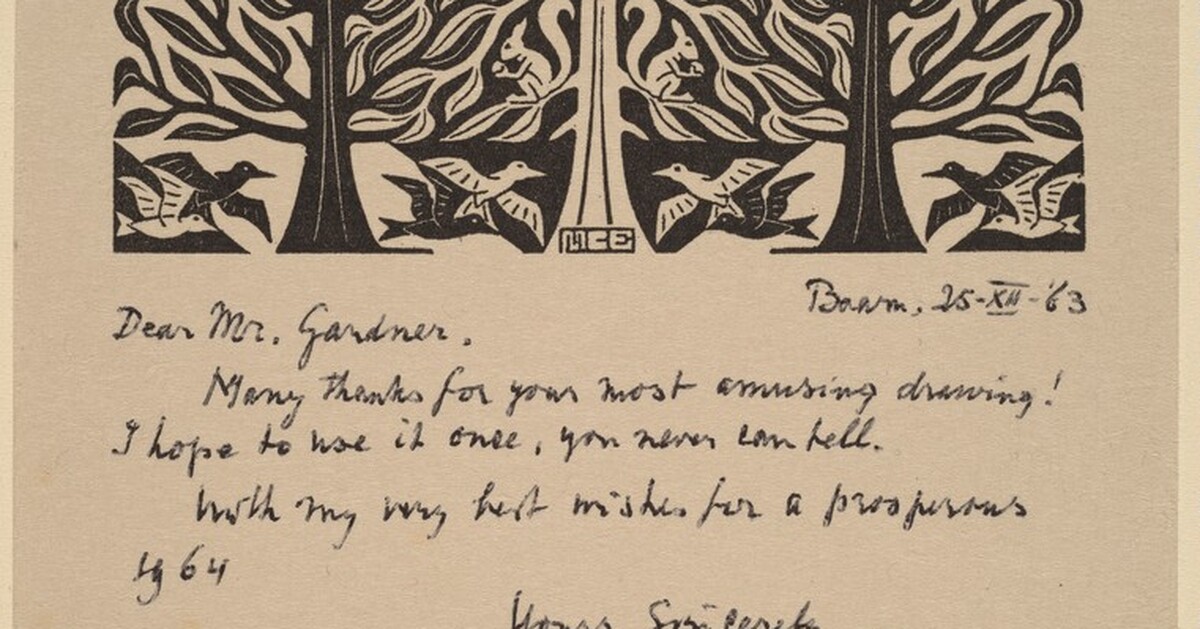 MCE
Baarn, 25-XII-'63
Dear Mr. Gardner.
Many thanks for your most amusing drawing!
I hope to use it once, you never can tell.
With my very best wishes for a prosperous
1964
Yours Sincerely